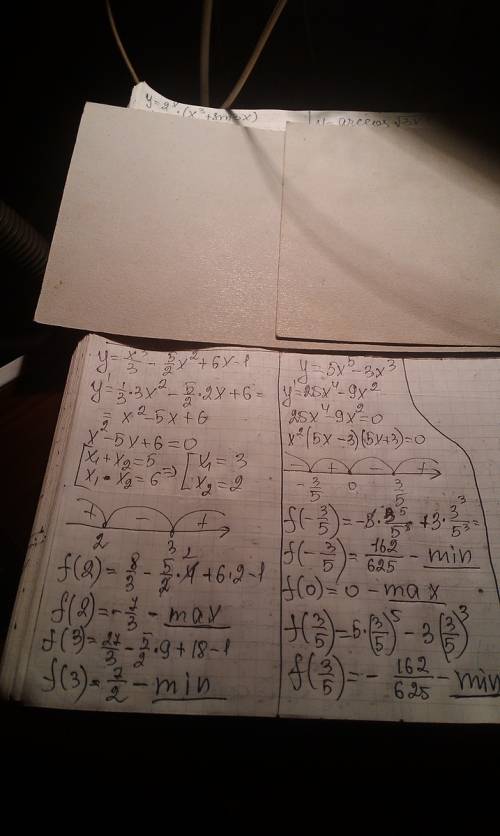 y=2ˣ·(x³+
y=arccos √3x
y=x³/3 - 5/2x²+6x-1
y'=1/3·3x²-5/2·2x+6=
= x²-5x+6
x²-5x+6=0
[x₁+x₂=5
x₁·x₂=6 => [x₁=3
x₂=2
+ - +
2 3
f(2)=8/3-5/2·4+6·2-1
f(2)= - max
f(3)=27/3-5/2·9+18-1
f(3)=7/2 - min
y=5x⁵-3x³
y=25x⁴-9x²
25x⁴-9x²=0
x²(5x-3)(5x+3)=0
- + - +
-3/5 0 3/5
f(-3/5)=-5·3⁵/5⁵+3·3³/5³=
f(-3/5)=162/625 - min
f(0)=0 - max
f(3/5)=5·(3/5)⁵-3(3/5)³
f(3/5)=-162/625 - min